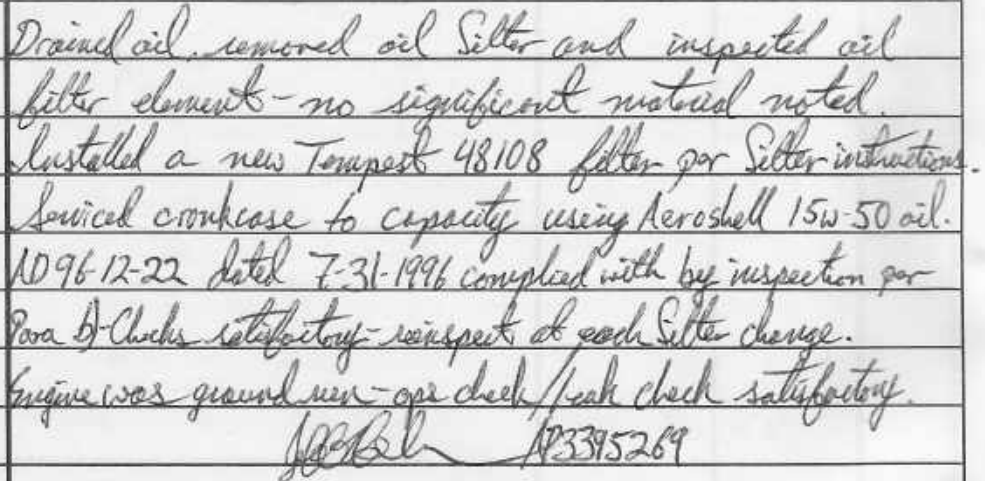 Drained oil, removed oil filter and inspected oil
filter element - no significant material noted.
Installed a new Tempest 48108 filter per filter instructions.
Serviced crankcase to capacity using Aeroshell 15w-50 oil.
AD 96-12-22 dated 7-31-1996 complied with by inspection per
Para b)-Checks satisfactory - reinspect at each filter change.
Engine was ground run - ops check/leak check satisfactory.
AP3395269